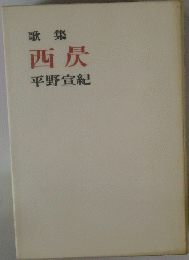 歌集
西昃
平野宣紀